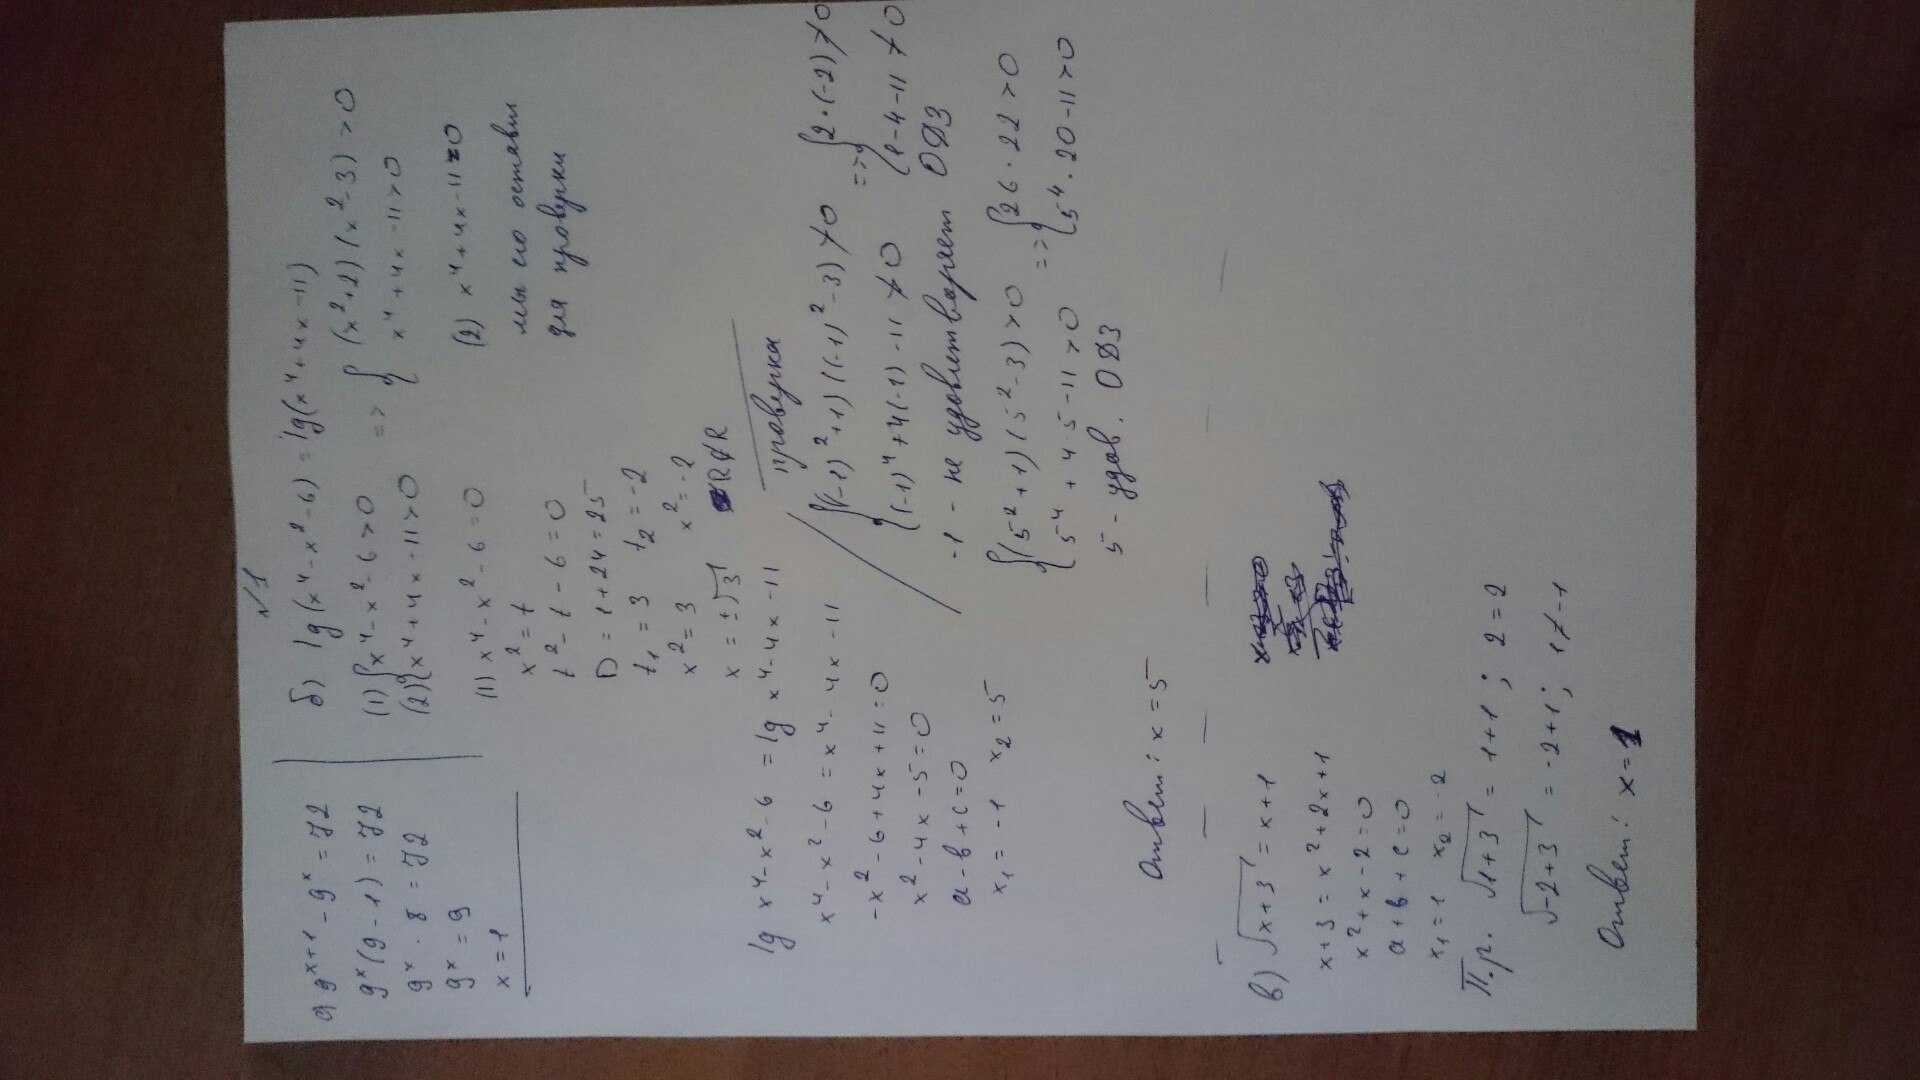 N1
а) 9^{x+1} - 9^x = 72
9^x(9-1) = 72
9^x · 8 = 72
9^x = 9
x = 1
б) lg(x^4 - x^2 - 6) = lg(x^4 + 4x - 11)
(1) { x^4 - x^2 - 6 > 0 => { (x^2+2)(x^2-3) > 0
(2) { x^4 + 4x - 11 > 0 x^4 + 4x - 11 > 0
(1) x^4 - x^2 - 6 = 0 (2) x^4 + 4x - 11 > 0
x^2 = t мы его оставим
t^2 - t - 6 = 0 для проверки
D = 1 + 24 = 25
t_1 = 3 t_2 = -2
x^2 = 3 x^2 = -2
x = ±√3 ∉ R
lg x^4 - x^2 - 6 = lg x^4 - 4x - 11
x^4 - x^2 - 6 = x^4 - 4x - 11
-x^2 - 6 + 4x + 11 = 0
x^2 - 4x - 5 = 0
a - b + c = 0
x_1 = -1 x_2 = 5
проверка
{ ((-1)^2+1)((-1)^2-3) ≯ 0 => { 2·(-2) ≯ 0
(-1)^4 + 4(-1) - 11 ≯ 0 1-4-11 ≯ 0
-1 - не удовлетворяет ОДЗ
{ (5^2+1)(5^2-3) > 0 => { 26 · 22 > 0
5^4 + 4·5 - 11 > 0 5^4 · 20 - 11 > 0
5 - удов. ОДЗ
Ответ: x = 5
в) √x+3 = x+1
x+3 = x^2+2x+1
x^2+x-2=0
a+b+c=0
x_1=1 x_2=-2
П.р. √1+3 = 1+1; 2=2
√-2+3 = -2+1; 1≠-1
Ответ: x=1